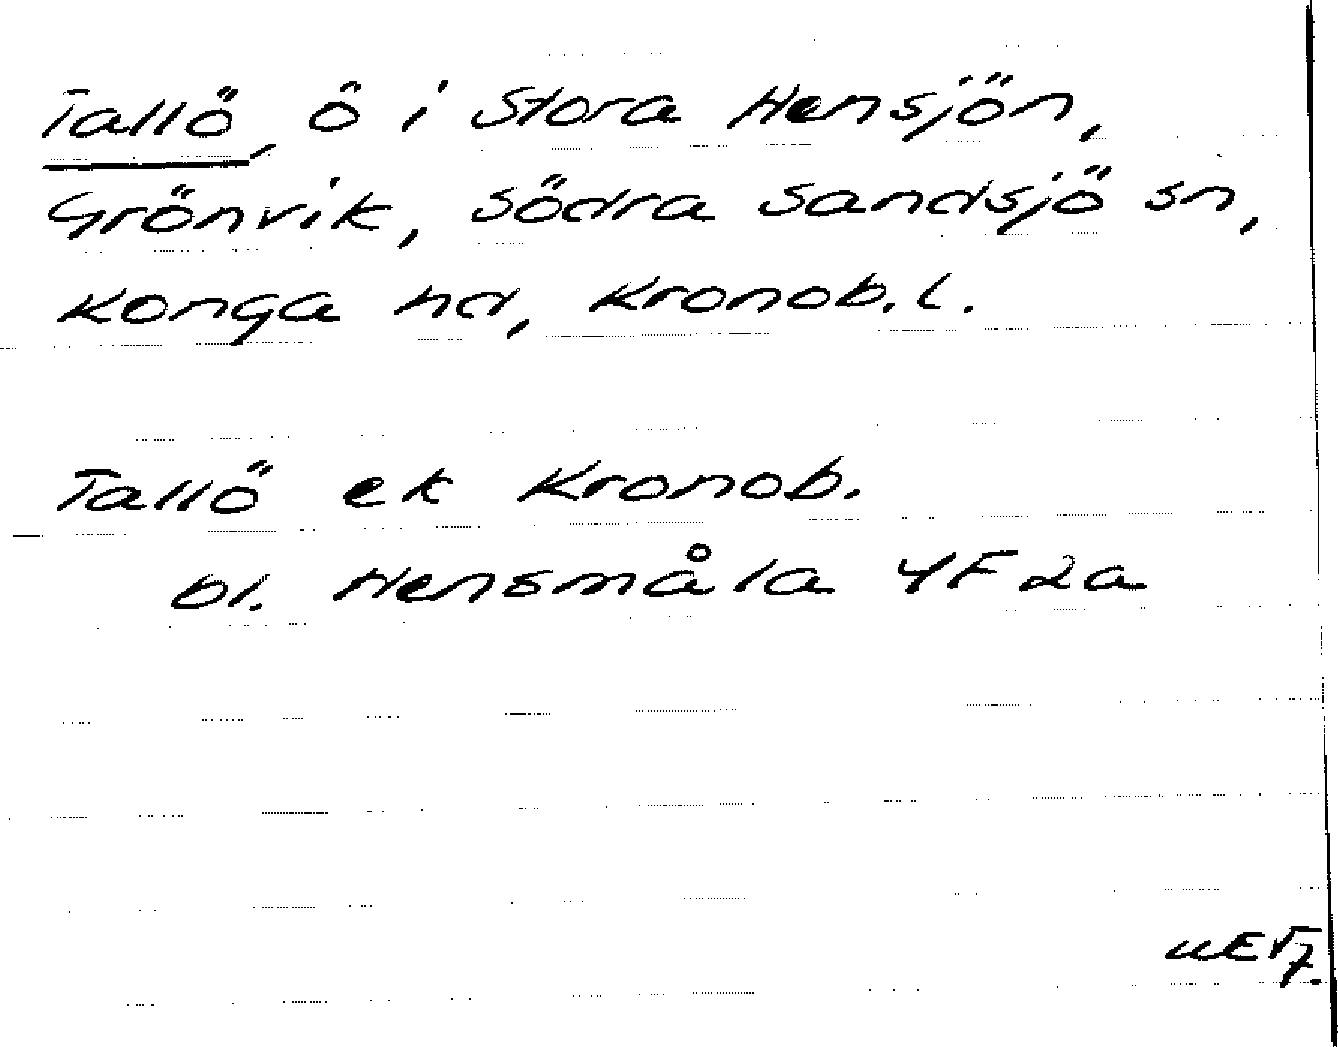 Tallö, ö i Stora Hensjön,
Grönvik, Södra Sandsjö sn,
Konga hd, Kronob. l.
Tallö ek Kronob.
bl. Hensmåla 4F 2a